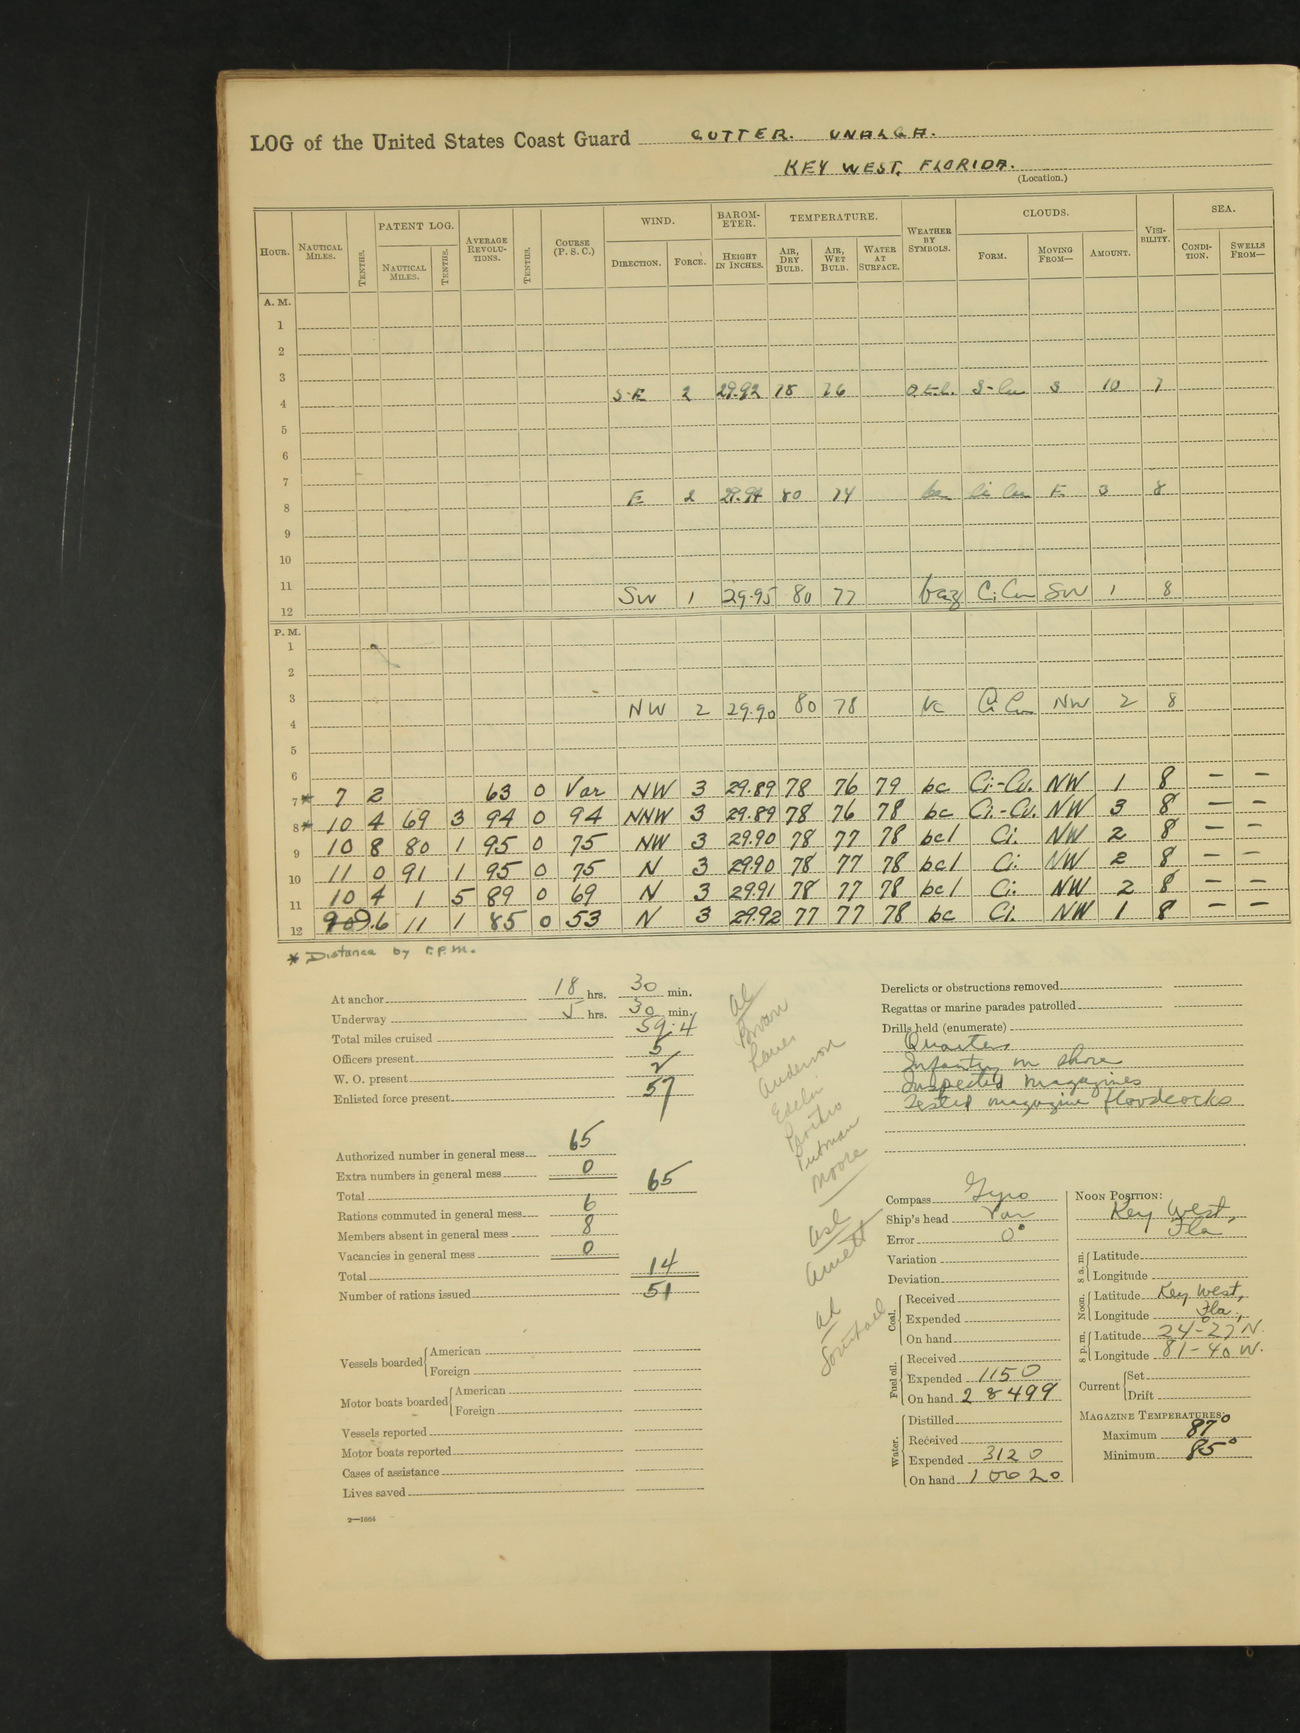 LOG of the United States Coast Guard CUTTER. UNALGA.
KEY WEST, FLORIDA.
(Location.)
HOUR. NAUTICAL MILES. TENTHS. PATENT LOG. NAUTICAL MILES. TENTHS. AVERAGE REVOLUTIONS. TENTHS. COURSE (P. S. C.) WIND. DIRECTION. FORCE. BAROMETER. HEIGHT IN INCHES. TEMPERATURE. AIR, DRY BULB. AIR, WET BULB. WATER AT SURFACE. WEATHER BY SYMBOLS. CLOUDS. FORM. MOVING FROM— AMOUNT. VISIBILITY. SEA. CONDITION. SWELLS FROM—
A. M.
1
2
3
4 SE 2 29.92 78 76 S-Cu S 10 7
5
6
7
8 E 2 29.94 80 74 bc Ci Cu E 3 8
9
10
11
12 SW 1 29.95 80 77 bcz Ci Cu SW 1 8
P. M.
1
2
3
4 NW 2 29.90 80 78 bc Ci Cu NW 2 8
5
6
7* 7 2 63 0 Var NW 3 29.89 78 76 79 bc Ci-Cu. NW 1 8 — —
8* 10 4 69 3 94 0 94 NNW 3 29.89 78 76 78 bc Ci.-Cu. NW 3 8 — —
9 10 8 80 1 95 0 75 NW 3 29.90 78 77 78 bcl Ci. NW 2 8 — —
10 11 0 91 1 95 0 75 N 3 29.90 78 77 78 bcl Ci. NW 2 8 — —
11 10 4 1 5 89 0 69 N 3 29.91 78 77 78 bcl Ci. NW 2 8 — —
12 9.6 11 1 85 0 53 N 3 29.92 77 77 78 bc Ci. NW 1 8 — —
* Distance by r.p.m.
At anchor 18 hrs. 30 min.
Underway 5 hrs. 30 min.
Total miles cruised 59.4
Officers present 5
W. O. present 2
Enlisted force present 57
Authorized number in general mess 65
Extra numbers in general mess 0
Total 65
Rations commuted in general mess 6
Members absent in general mess 8
Vacancies in general mess 0
Total 14
Number of rations issued 51
Vessels boarded American
Foreign
Motor boats boarded American
Foreign
Vessels reported
Motor boats reported
Cases of assistance
Lives saved
2—1664
al
Anderson
Putman
Moore
asl
Arnett
al
Derelicts or obstructions removed
Regattas or marine parades patrolled
Drills held (enumerate)
Quarters
Infantry on shore
Inspected magazines
Tested magazine floodcocks
Compass Gyro
Ship's head Var
Error 0°
Variation
Deviation
Coal. Received
Expended
On hand
Fuel oil. Received
Expended 1150
On hand 28499
Water. Distilled
Received
Expended 3120
On hand 10020
NOON POSITION:
Key West,
Fla
8 a. m. Latitude
Longitude
Noon. Latitude Key West,
Longitude Fla.,
8 p. m. Latitude 24-27 N.
Longitude 81-40 W.
Current Set
Drift
MAGAZINE TEMPERATURES:
Maximum 87°
Minimum 85°